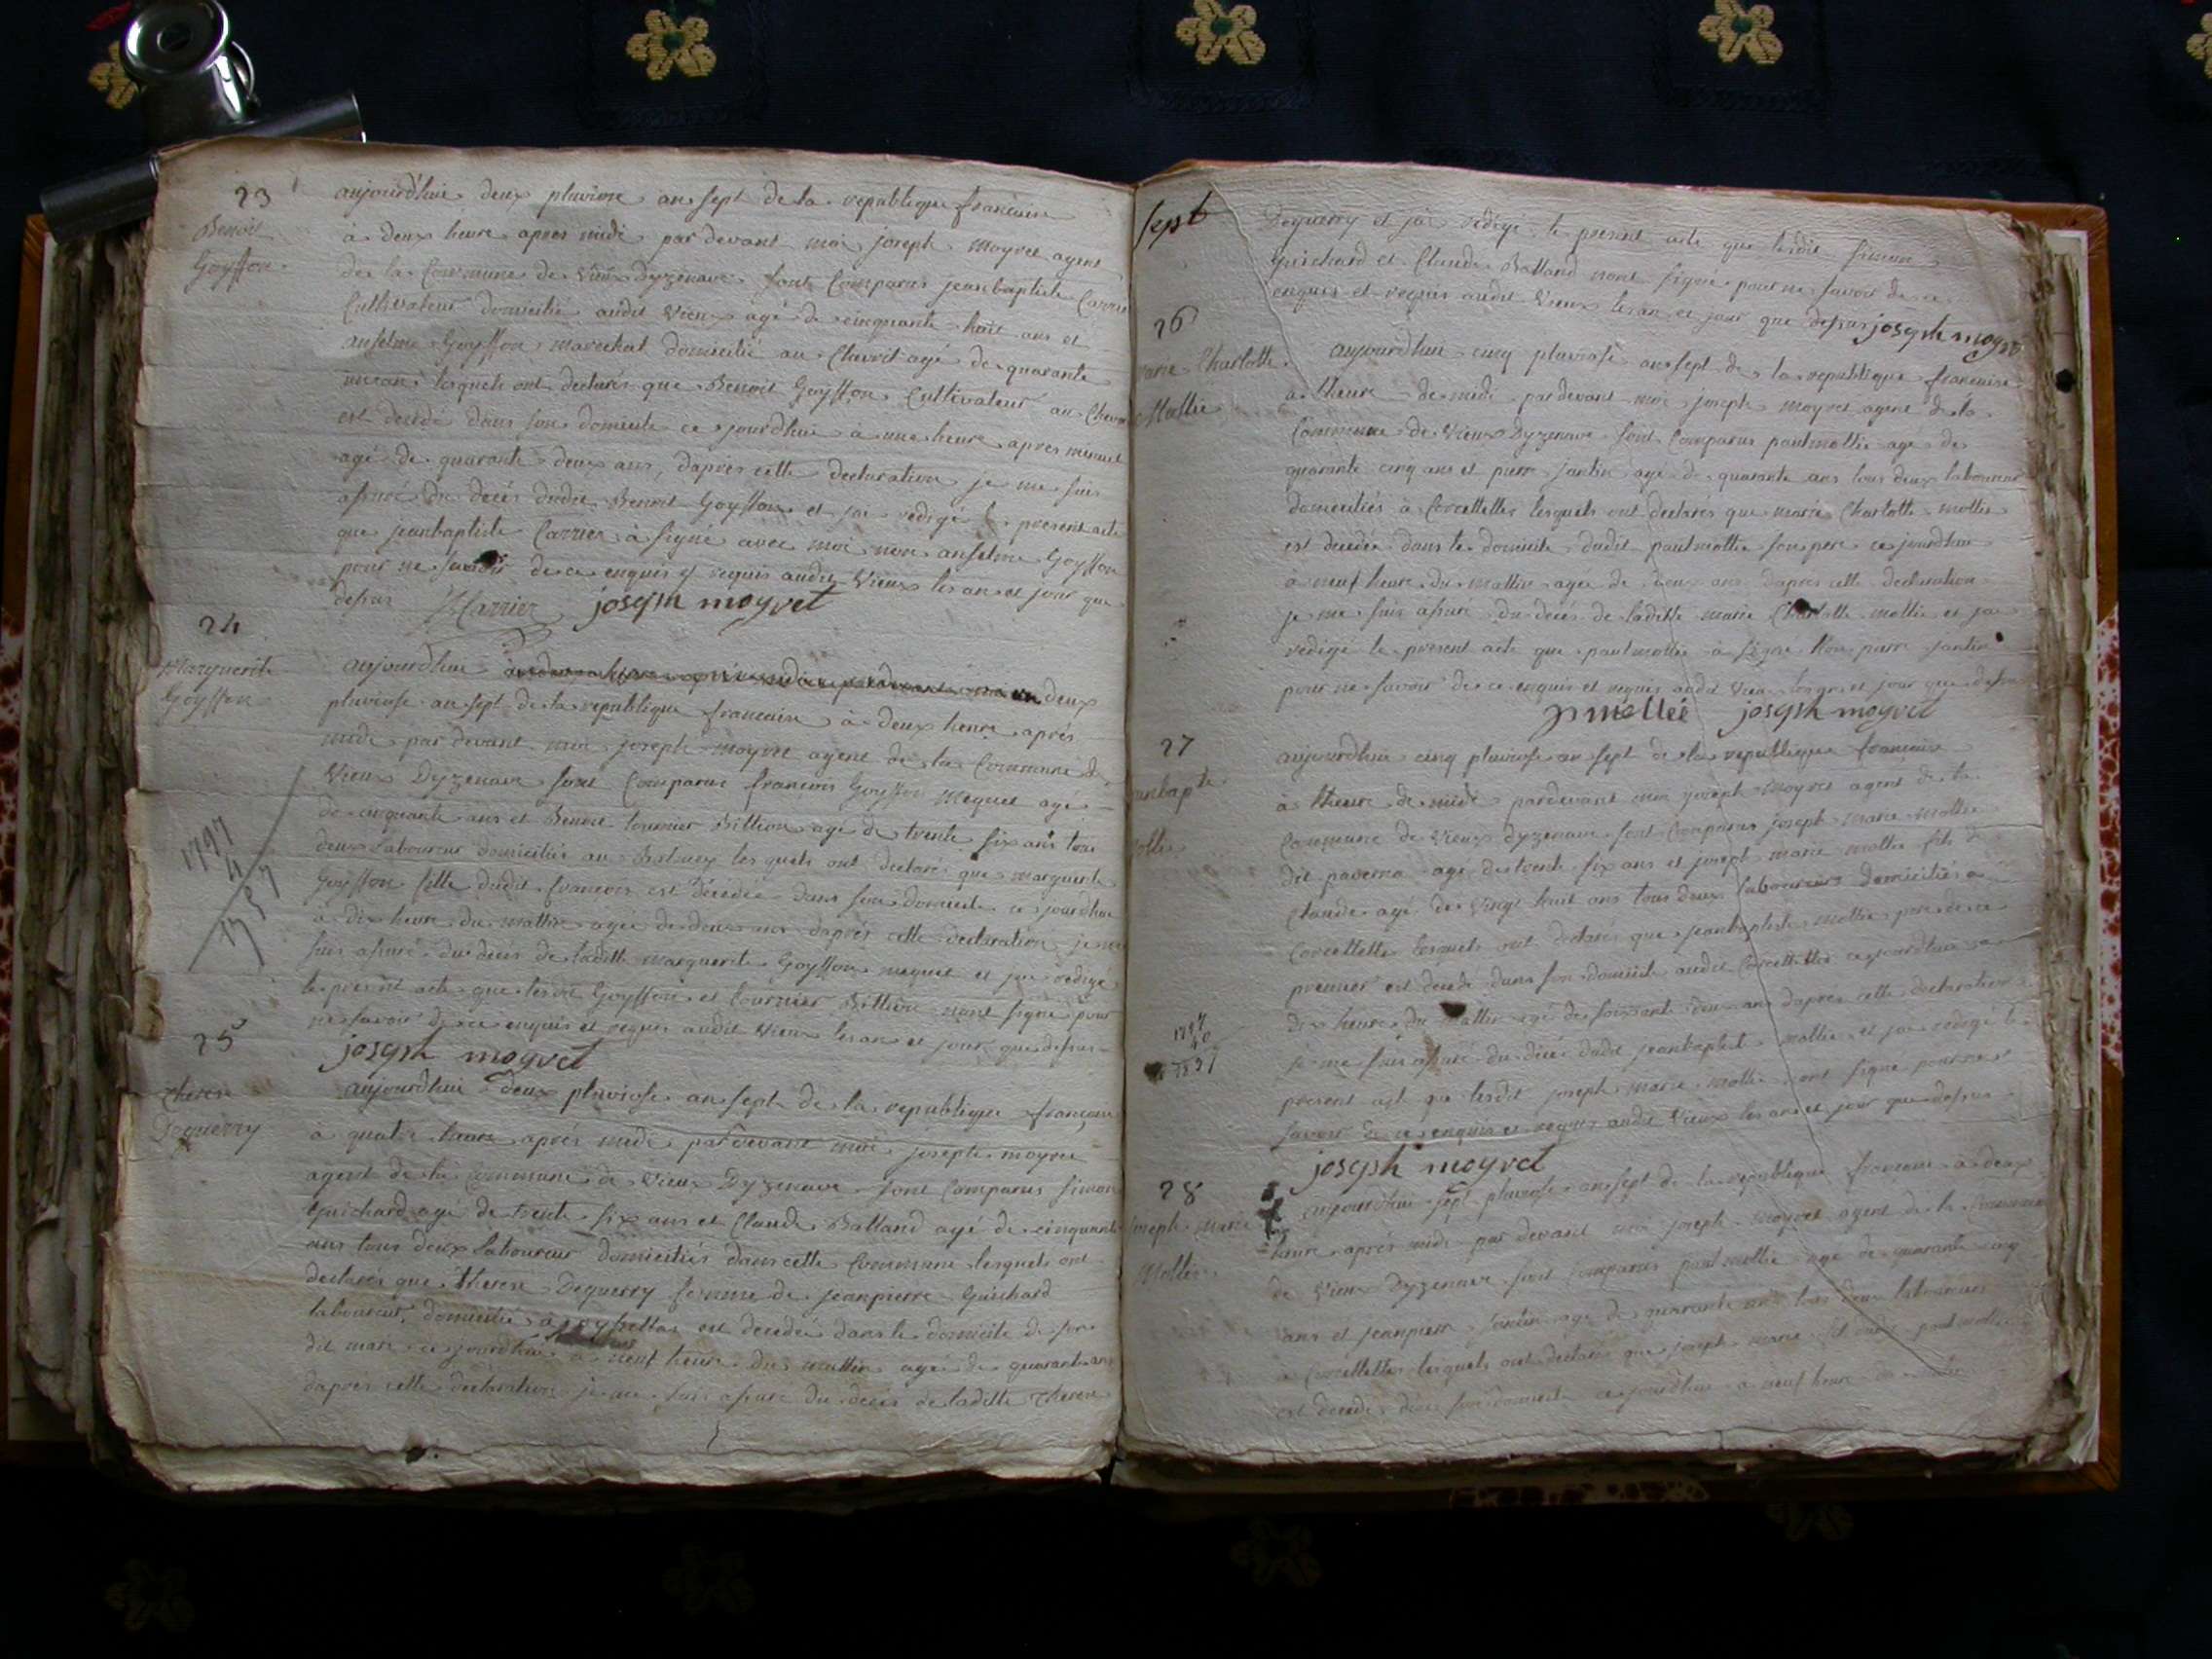 23
Benoit
Goyffon
aujourdhui deux pluviose an sept de la republique francaise
à deux heure apres midi par devant moi joseph moyret agent
de la Commune de Vieux Dyzenave sont Comparus jeanbaptiste Carrier
Cultivateur domicilié audit Vieux agé de cinquante huit ans et
anselme Goyffon marechal domicilié au Chavoit agé de quarante
un ans lesquels ont declarés que Benoit Goyffon Cultivateur au
est decedé dans son domicile ce jourdhui à une heure apres minuit
agé de quarante deux ans, daprès cette declaration je me suis
assuré du decés dudit Benoit Goyffon et jai redigé le present acte
que jeanbaptiste Carrier à signé avec moi non anselme Goyffon
pour ne savoir de ce enquis et requis audit Vieux les an et jour que
dessus JB Carrier joseph moyret
24
Marguerite
Goyffon
aujourdhui deux
pluviose an sept de la republique francaise à deux heure après
midi par devant moi joseph moyret agent de la Commune de
Vieux Dyzenave sont Comparus françois Goyffon Meguet agé
de cinquante ans et Benoit tournier Billion agé de trente six ans tous
deux laboureur domiciliés au lesquels ont declarés que marguerite
Goyffon fille dudit francois est decedée dans son domicile ce jourdhui
à dix heure du mattin agée de deux ans daprès cette declaration je me
suis assuré du decés de laditte marguerite Goyffon meguet et jai redigé
le present acte que lesdit Goyffon et tournier Billion nont signé pour
ne savoir de ce enquis et requis audit Vieux les an et jour que dessus
joseph moyret
1797
4
1757
25
Therese
Deguerry
aujourdhui deux pluviose an sept de la republique francaise
à quatre heure après midi par devant moi joseph moyret
agent de la commune de Vieux Dyzenave sont Comparus simon
Guichard agé de trente six ans et Claude Balland agé de cinquante
ans tous deux laboureur domiciliés dans cette Commune lesquels ont
declarés que therese Deguerry femme de jeanpierre Guichard
laboureur domicilié à est decedée dans le domicile de son
dit mari ce jourdhui à neuf heure du mattin agée de quarante ans
daprés cette declaration je me suis assuré du decés de laditte Therese
sept
Deguerry et jai redigé le present acte que lesdit simon
guichard et Claude Balland nont signé pour ne savoir de ce
enquis et requis audit Vieux les an et jour que dessus joseph moyret
26
marie Charlotte
Mollie
aujourdhui cinq pluviose an sept de la republique francaise
à lheure de midi pardevant moi joseph moyret agent de la
Commune de Vieux Dyzenave sont Comparus paul mollie agé de
quarante cinq ans et pierre jantin agé de quarante ans tous deux laboureur
domiciliés à Corcellette lesquels ont declarés que marie Charlotte mollie
est decedée dans le domicile dudit paul mollie son pere ce jourdhui
à neuf heure du mattin agée de deux ans daprès cette declaration
je me suis assuré du decés de ladite marie Charlotte mollie et jai
redigé le present acte que paul mollie à signé non pierre jantin
pour ne savoir de ce enquis et requis audit Vieux les an et jour que dessus
p mollié joseph moyret
27
jeanbapte
mollie
aujourdhui cinq pluviose an sept de la republique francaise
à lheure de midi pardevant moi joseph moyret agent de la
Commune de Vieux Dyzenave sont Comparus joseph marie mollie
dit paverna agé de trente six ans et joseph marie mollie fils de
Claude agé de Vingt huit ans tous deux laboureurs domiciliés à
Corcellette lesquels ont declarés que jeanbaptiste mollie pere de ce
premier est decedé dans son domicile audit Corcellette ce jourdhui à
dix heure du mattin agé de soixante deux ans daprès cette declaration
je me suis assuré du decés dudit jeanbaptiste mollie et jai redigé le
present acte que lesdit joseph marie mollie nont signé pour ne
savoir de ce enquis et requis audit Vieux les an et jour que dessus
joseph moyret
28
joseph marie
Mollie
aujourdhui sept pluviose an sept de la republique francaise à deux
heure après midi par devant moi joseph moyret agent de la Commune
de Vieux Dyzenave sont Comparus paul mollie agé de quarante cinq
ans et jeanpierre jantin agé de quarante ans tous deux laboureurs
à Corcellette lesquels ont declarés que joseph marie fils dudit paul mollie
est decedé dans son domicile ce jourdhui à neuf heure du mattin